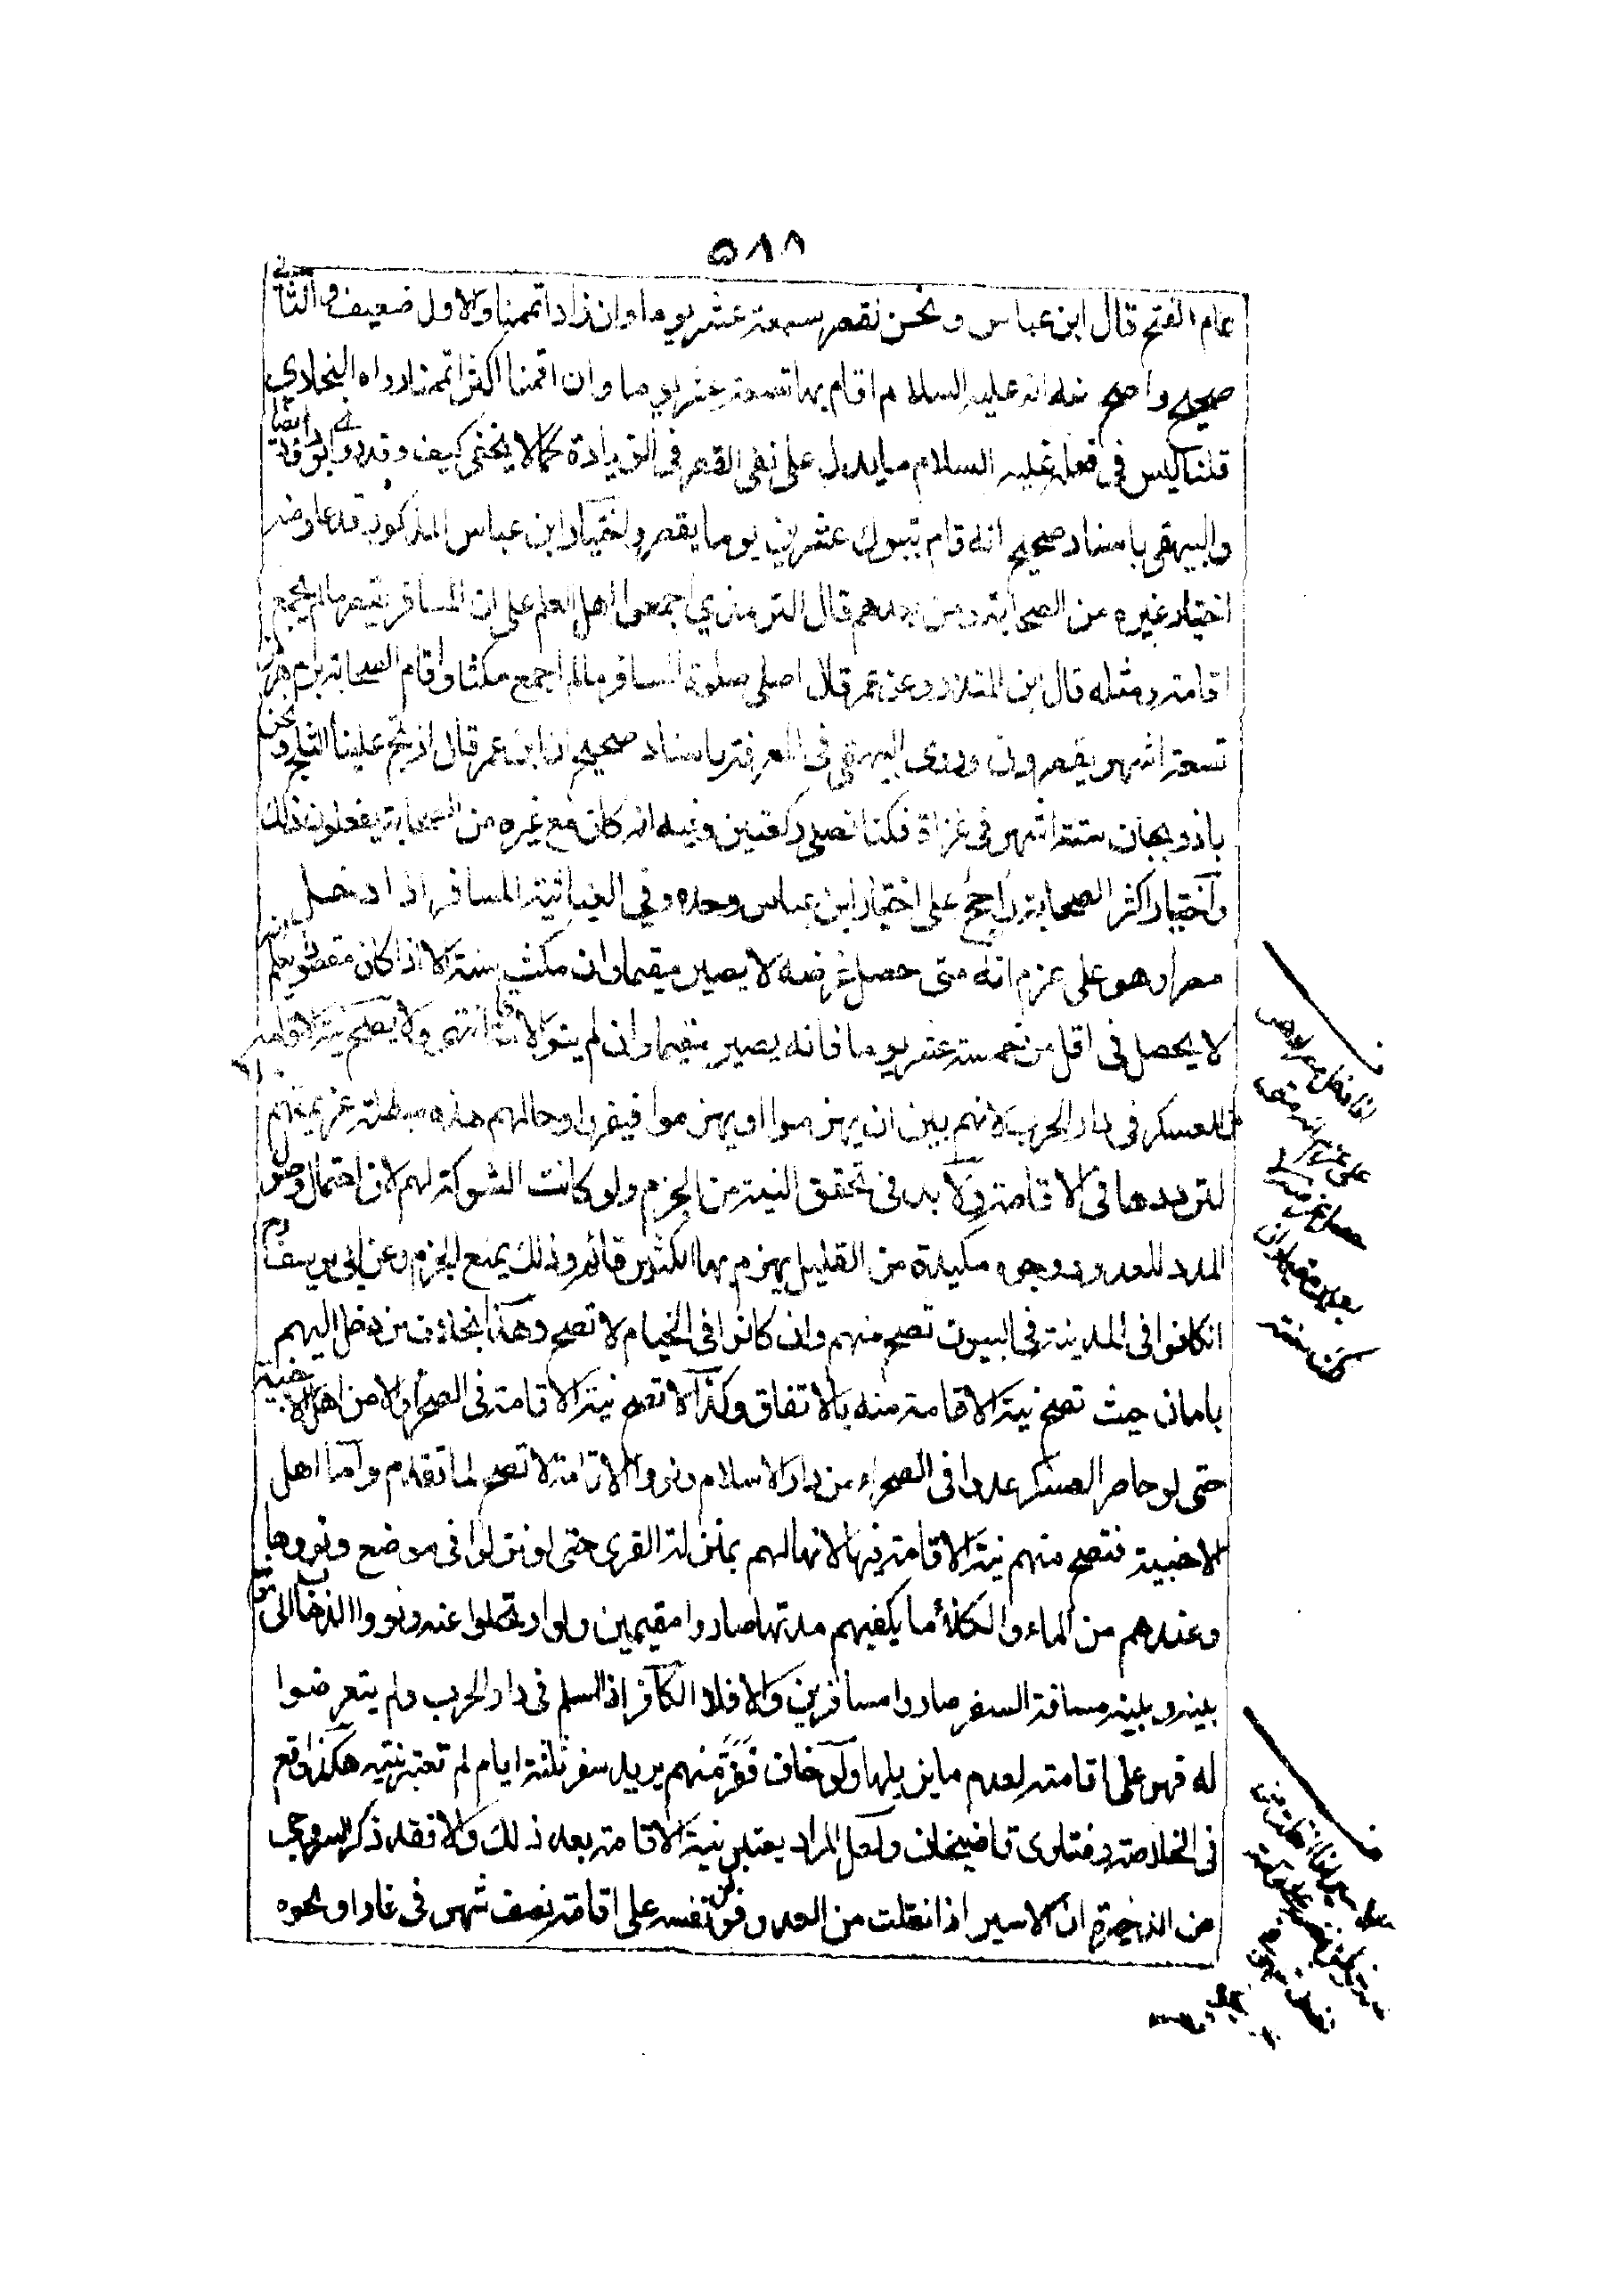 ٥٨٨
عام الفتح قال ابن عباس ونحن نقصر سبعة عشر يوما وان زاد اتممنا والاول ضعيف والثاني
صحيح واصح منه انه عليه السلام اقام بها تسعة عشر يوما وان اقمنا اكثر اتممنا رواه البخاري
قلنا ليس في فعله عليه السلام ما يدل على نفي القصر في الزيادة كما لا يخفى كيف وقد روى ابو داود ايضا
والبيهقي باسناد صحيح انه قام بتبوك عشرين يوما يقصر واختيار ابن عباس المذكور قد عارضه
اختيار غيره من الصحابة ومن بعدهم قال الترمذي اجمعوا اهل العلم على ان المسافر يقصر ما لم يجمع
اقامة ومثله قال ابن المنذر وعن عمر قال اصلي صلوة المسافر ما لم اجمع مكثا واقام الصحابة برام هرمز
تسعة اشهر يقصرون وروى البيهقي في المعرفة باسناد صحيح ان ابن عمر قال ارتج علينا الثلج ونحن
باذربيجان ستة اشهر في غزاة فكنا نصلي ركعتين وفيه انه كان مع غيره من الصحابة يفعلون ذلك
واختيار اكثر الصحابة راجح على اختيار ابن عباس وحده وفي الغياثية المسافر اذا دخل
مصرا وهو على عزم انه متى حصل غرضه لا يصير مقيما وان مكث سنة الا اذا كان مقصوده يعلم انه
لا يحصل في اقل من خمسة عشر يوما فانه يصير مقيما وان لم ينو الاقامة انتهى ولا يصح نية الاقامة
من العسكر في دار الحرب لانهم بين ان يهزموا او يهزموا فيفروا وحالهم هذه مبطلة عزيمتهم
لترددها في الاقامة ولا بد في تحقق النية من الجزم ولو كانت الشوكة لهم لان احتمال وصول
المدد للعدو ووجود مكيدة من القليل يهزم بها الكثير قائم وذلك يمنع الجزم وعن ابي يوسف رح
ان كانوا في المدينة في البيوت تصح منهم وان كانوا في الخيام لا تصح وهذا بخلاف من دخل اليهم
بامان حيث تصح نية الاقامة منه بالاتفاق وكذا لا تصح نية الاقامة في الصحراء الا من اهل الاخبية
حتى لو حاصر العسكر عدوا في الصحراء من دار الاسلام ونووا الاقامة لا تصح لما تقدم واما اهل
الاخبية فتصح منهم نية الاقامة فيها لانها لهم بمنزلة القرى حتى لو نزلوا في موضع ونووها
وعندهم من الماء والكلأ ما يكفيهم مدتها صاروا مقيمين ولو ارتحلوا عنه ونووا الذهاب الى
بينه وبينه مسافة السفر صاروا مسافرين والا فلا الكافر اذا اسلم في دار الحرب ولم يتعرضوا
له فهو على اقامته لعدم ما يزيلها ولو خاف ففر منهم يريد سفر ثلثة ايام لم تعتبر نيته هكذا وقع
في الخلاصة وفتاوى قاضيخان ولعل المراد يعتبر نية الاقامة بعد ذلك والا فقد ذكر السروجي
من الذخيرة ان الاسير اذا انفلت من العدو وطن نفسه على اقامة نصف شهر في غار او نحوه